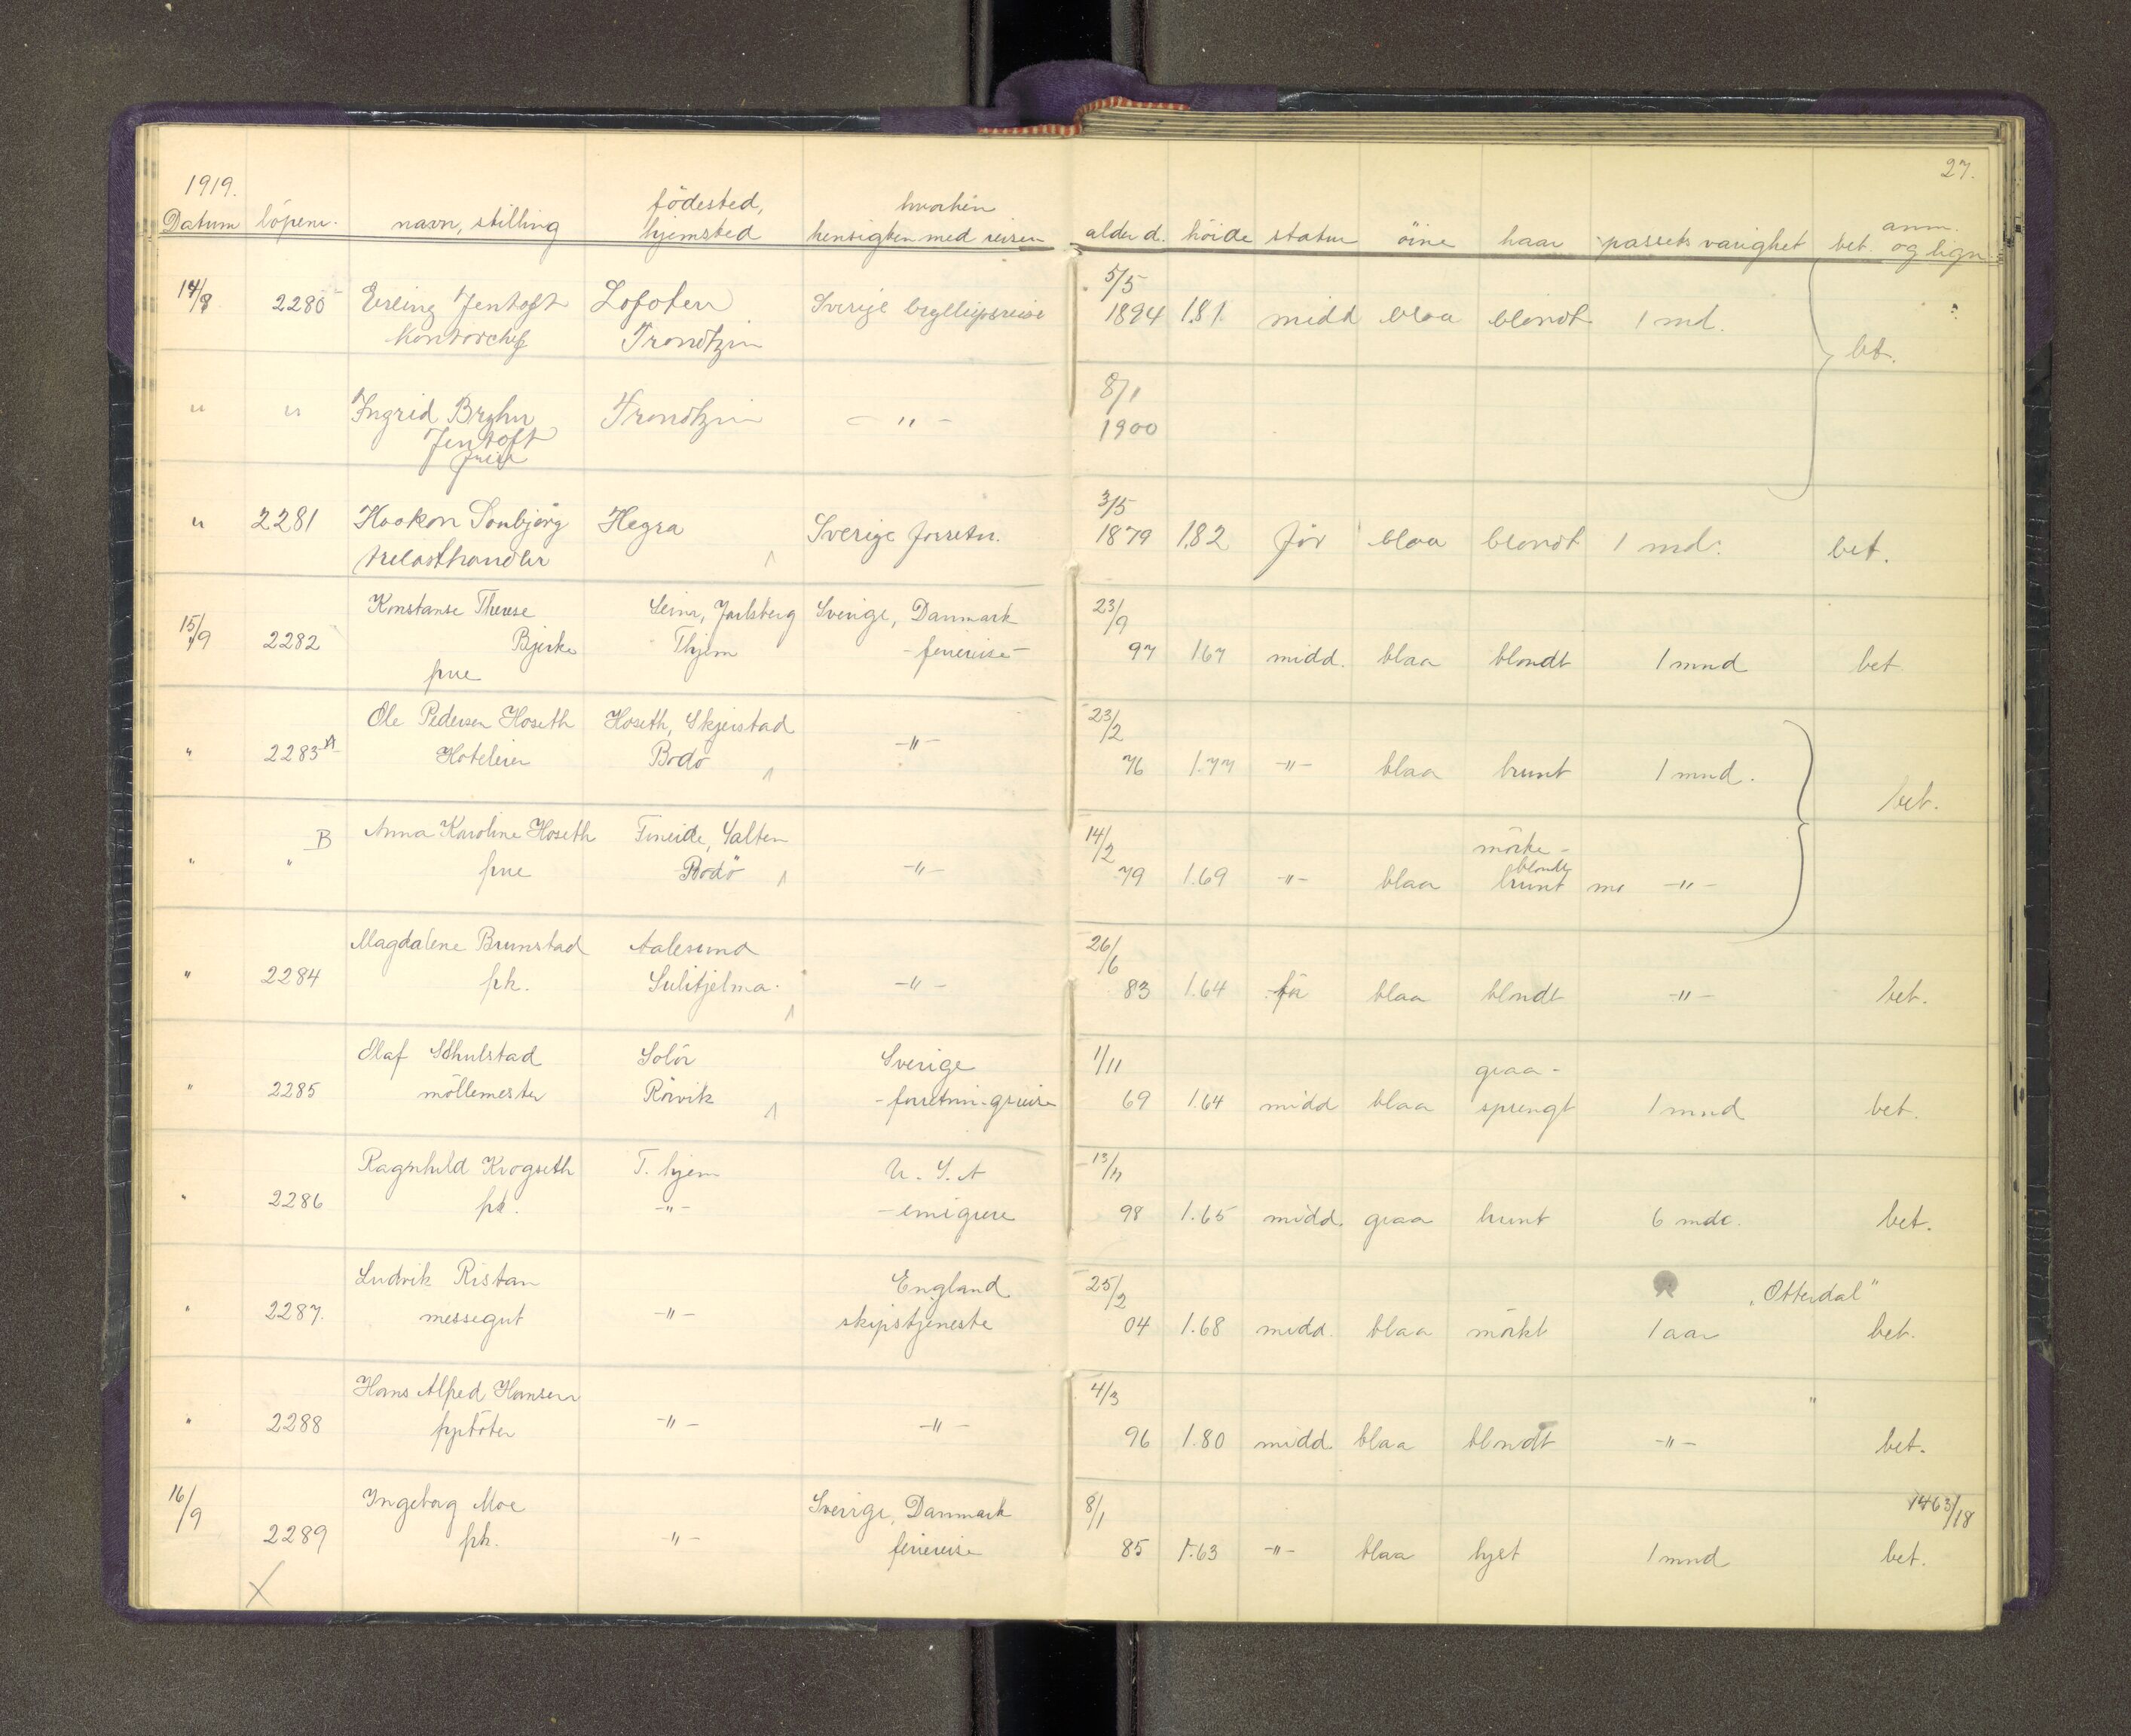 27.
1919.
Datum löpenr. navn, stilling födested, hjemsted hvorhen hensigten med reisen alder d. höide statur öine haar passets varighet bet. anm. og lign.
14/8 2280 Erling Jentoft Lofoten Sverige bryllupsreise 5/5 1894 1.81. midd blaa blondt 1 md. bet.
Kontorchef Trondhjm
" " Ingrid Bryhn Trondhjm - " - 8/1 1900
Jentoft
frue
" 2281 Haakon Sonbjörg Hegra Sverige forretn. 3/5 1879 1.82 för blaa blondt 1 md. bet.
trelasthandler
15/9 2282 Konstanse Therese Jarlsberg Sverige, Danmark 23/9 97 1.67 midd. blaa blondt 1 mnd bet.
Bjerke Thjem - feriereise -
frue
" 2283 A Ole Pedersen Hoseth Hoseth, Skjerstad - " - 23/2 76 1.77 - " - blaa brunt 1 mnd. bet.
Hoteleier Bodö
" " B Anna Karoline Hoseth Fineide, Salten - " - 14/2 79 1.69 - " - blaa mörke- blondt brunt - " -
frue Bodö
" 2284 Magdalene Brunstad Aalesund - " - 26/6 83 1.64 för blaa blondt - " - bet.
frk. Sulitjelma.
" 2285 Olaf Schulstad Solör Sverige 1/11 69 1.64 midd blaa graa- sprengt 1 mnd bet.
möllemester Rörvik - forretningsreise
" 2286 Ragnhild Krogseth T. hjem U. S. A 13/11 98 1.65 midd. graa brunt 6 mdr. bet.
frk. - " - - emigrere
" 2287. Ludvik Ristan - " - England 25/2 04 1.68 midd. blaa mörkt 1 aar „Otterdal" bet.
messegut skipstjeneste
" 2288 Hans Alfred Hansen - " - - " - 4/3 96 1.80 midd. blaa blondt - " - " bet.
fyrböter
16/9 2289 Ingeborg Moe - " - Sverige, Danmark 8/1 85 1.63 - " - blaa lyst 1 mnd 1463/18 bet.
frk. feriereise
X